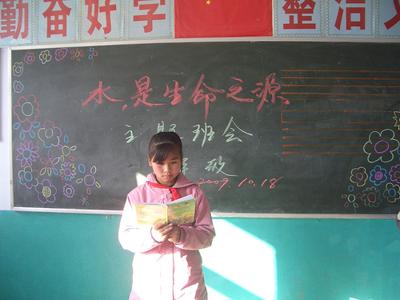 勤奋好学 整洁
水,是生命之源
主题班会
2009.10.18